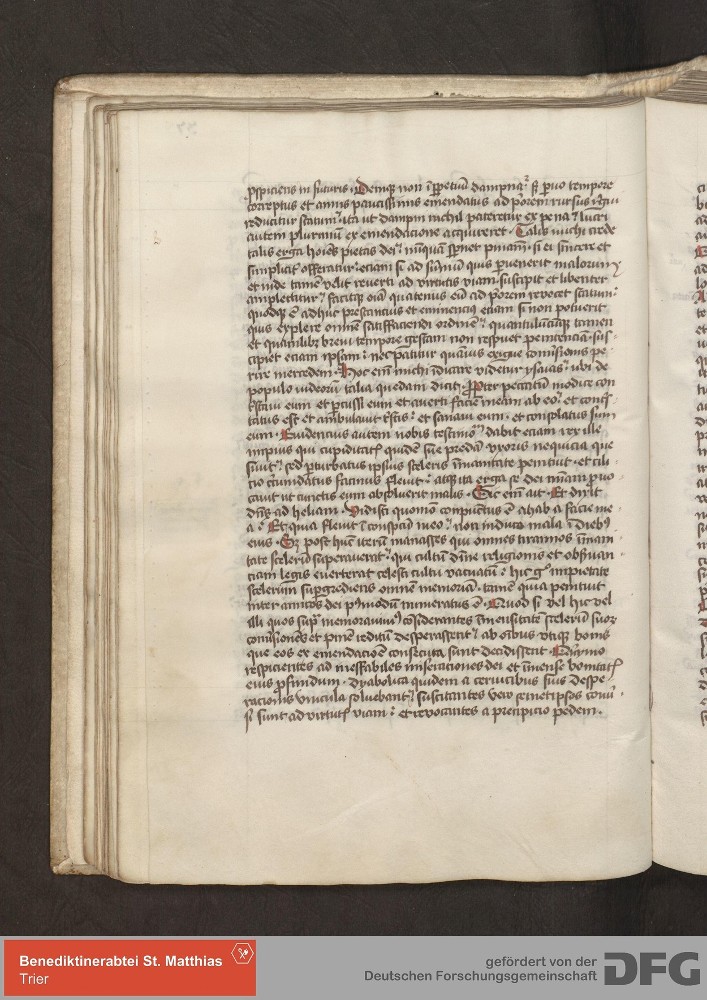 pspiciens in futuris. Demique non ipetuū dampnaᵗ: sꝫ puo tempore
correptus et annis paucissimis emendatus ad pōrem rursus
reducitur statum: ita ut dampni nichil pateretur ex pena: lucri
autem plurimū ex emendacione acquireret. Talis michi crede
talis erga hoīes pietas dei: nūquā spnet pniam: si ei sincere et
simplicitʳ offeratur: etiam si ad sūmū quis puenerit malorum
et inde tamē velit reverti ad virtutis viam: suscipit et libenter
amplectitur: facitque oīa quatenus eū ad pōrem revocet statum:
quodque ē adhuc prestancius et eminencius etiam si non potuerit
quis explere omnē satisfaciendi ordinē: quantulācūque tamen
et quamlibꝫ brevi tempore gestam non respuet penitenciā: sus
cipiet etiam ipsam: nec patitur quāvis exigue cōversionis pe
rire mercedem. Hoc enī michi īdicare videtur ysaias: ubi de
populo iudeorū talia quedam dicit. Propter peccatū modice con
tristavi eum et pcussi eum et averti faciē meam ab eo: et contris
tatus est et ambulavit tristis: et sanavi eum. et consolatus sum
eum. Evidencius autem nobis testimoīū dabit etiam rex ille
impius qui cupiditatē quidē sue predā uxoris nequicia que
sivit: sed pturbatus ipsius sceleris īmanitate penituit. et cili
cio circūdatus facinus flevit: atque ita erga se dei mīam pvo
cavit ut cunctis eum absolverit malis. Sic enī ait. Et dixit
dn̄s ad heliam. Vidisti quomō conpunctus ē ahab a facie me
a ē Et quia flevit ī conspcū meo: non inducā mala ī diebꝫ
eius. Et post hūc iterū manasses qui omnes tirannos īmani
tate scelerū superaverat: qui cultū divīe religionis et obsvan
ciam legis everterat celesti cultu vacuatū: hic gᵒ impietate
scelerum supergrediens omnē memoriā. tamē quia penituit
inter amicos dei pᵗmodū numeratus ē. Quod si vel hic vel
illi quos supᵃ memoravimᵘ cōsiderantes īmensitatē scelerū suoꝝ
cōversiones et pnīe reditū desperassent: ab oībus utique bonis
que eos ex emendacioē consecuta sunt decidissent.
respicientes ad ineffabiles miseraciones dei et īmense bonitatʳ
eius pfundum. Dyabolica quidem a cervicibus suis despe
racionis vincula solvebant: suscitantes vero semetipsos convⁱ
si sunt ad virtutʳ viam: et revocantes a precipicio pedem.
Benediktinerabtei St. Matthias
Trier
gefördert von der
Deutschen Forschungsgemeinschaft
DFG